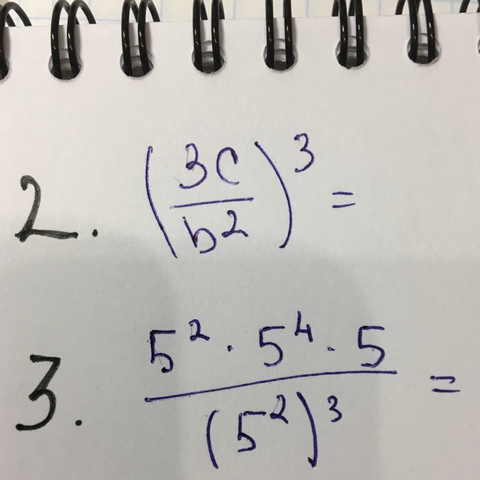 2. (3c/b²)³ =
3. 5² · 5⁴ · 5 / (5²)³ =